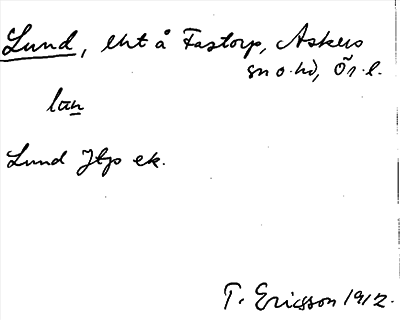 Lund, lht å Fastorp, Askers
sn o. hd, Ör. l.
lun
Lund Jtp ek.
T. Ericsson 1912.